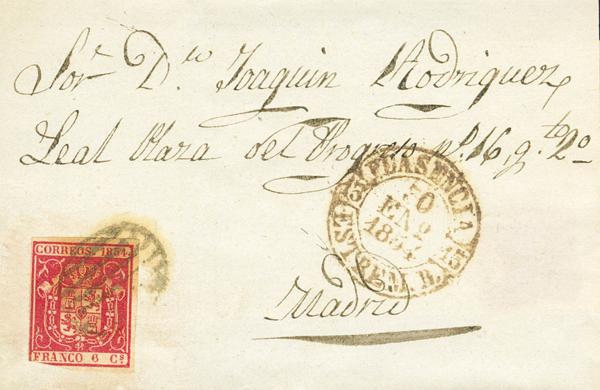 Sor. Dn. Joaquin Rodriguez
Leal Plaza del Progreso nº 16, qto 2º
PLASENCIA
30
ENº
1854
Madrid
CORREOS. 1854.
FRANCO 6 Cs